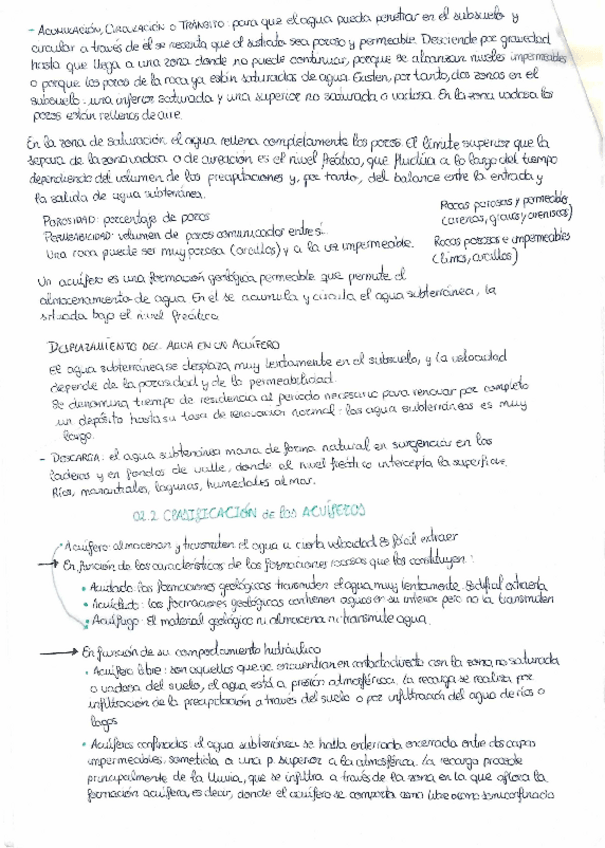 - ACUMULACIÓN, CIRCULACIÓN O TRÁNSITO: para que el agua pueda penetrar en el subsuelo y
circular a través de él se necesita que el sustrato sea poroso y permeable. Desciende por gravedad
hasta que llega a una zona donde no puede continuar, porque se alcanzan niveles impermeables
o porque los poros de la roca ya están saturados de agua. Existen, por tanto, dos zonas en el
subsuelo: una inferior saturada y una superior no saturada o vadosa. En la zona vadosa los
poros están rellenos de aire.
En la zona de saturación el agua rellena completamente los poros. El límite superior que la
separa de la zona vadosa o de aireación es el nivel freático, que fluctúa a lo largo del tiempo
dependiendo del volumen de las precipitaciones y, por tanto, del balance entre la entrada y
la salida de agua subterránea.
POROSIDAD: porcentaje de poros
PERMEABILIDAD: volumen de poros comunicados entre sí.
Una roca puede ser muy porosa (arcillas) y a la vez impermeable.
Rocas porosas y permeables
(arenas, gravas y areniscas)
Rocas porosas e impermeables
(limos, arcillas)
Un acuífero es una formación geológica permeable que permite el
almacenamiento de agua. En el se acumula y circula el agua subterránea, la
situada bajo el nivel freático.
DESPLAZAMIENTO DEL AGUA EN UN ACUÍFERO
El agua subterránea se desplaza muy lentamente en el subsuelo, y la velocidad
depende de la porosidad y de la permeabilidad.
Se denomina tiempo de residencia al periodo necesario para renovar por completo
un depósito hasta su tasa de renovación normal: las agua subterráneas es muy
largo.
- DESCARGA: el agua subterránea mana de forma natural en surgencias en las
laderas y en fondos de valle, donde el nivel freático intercepta la superficie.
Ríos, manantiales, lagunas, humedales al mar.
02.2 CLASIFICACIÓN de los ACUÍFEROS
• Acuífero: almacenan y transmiten el agua a cierta velocidad. Es fácil extraer
→ En función de las características de las formaciones rocosas que los constituyen:
• Acuitardo: las formaciones geológicas transmiten el agua muy lentamente. Es difícil extraerla
• Acuicludo: las formaciones geológicas contienen agua en su interior pero no la transmiten
• Acuífugo: El material geológico ni almacena ni transmite agua.
→ En función de su comportamiento hidráulico
• Acuífero libre: son aquellos que se encuentran en contacto directo con la zona no saturada
o vadosa del suelo, el agua está a presión atmosférica. La recarga se realiza por
infiltración de la precipitación a través del suelo o por infiltración del agua de ríos o
lagos
• Acuíferos confinados: el agua subterránea se halla enterrada encerrada entre dos capas
impermeables, sometida a una p. superior a la atmosférica. La recarga procede
principalmente de la lluvia, que se infiltra a través de la zona en la que aflora la
formación acuífera, es decir, donde el acuífero se comporta como libre o como semiconfinado